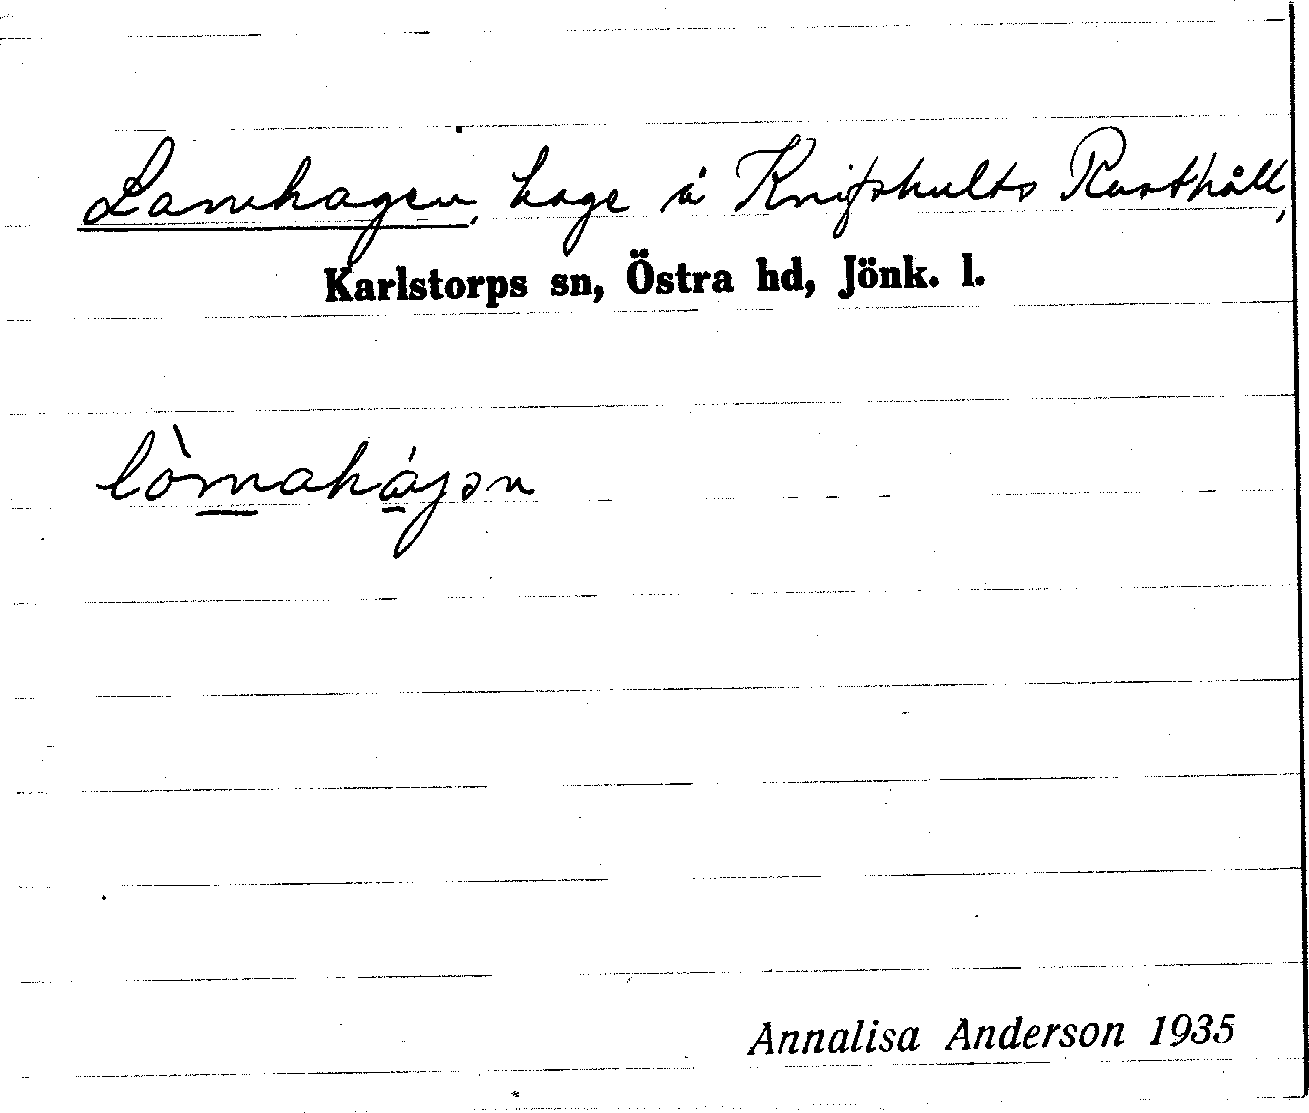 Lamhagen, hage å Knifshults Rusthåll,
Karlstorps sn, Östra hd, Jönk. l.
lòmahágən
Annalisa Anderson 1935